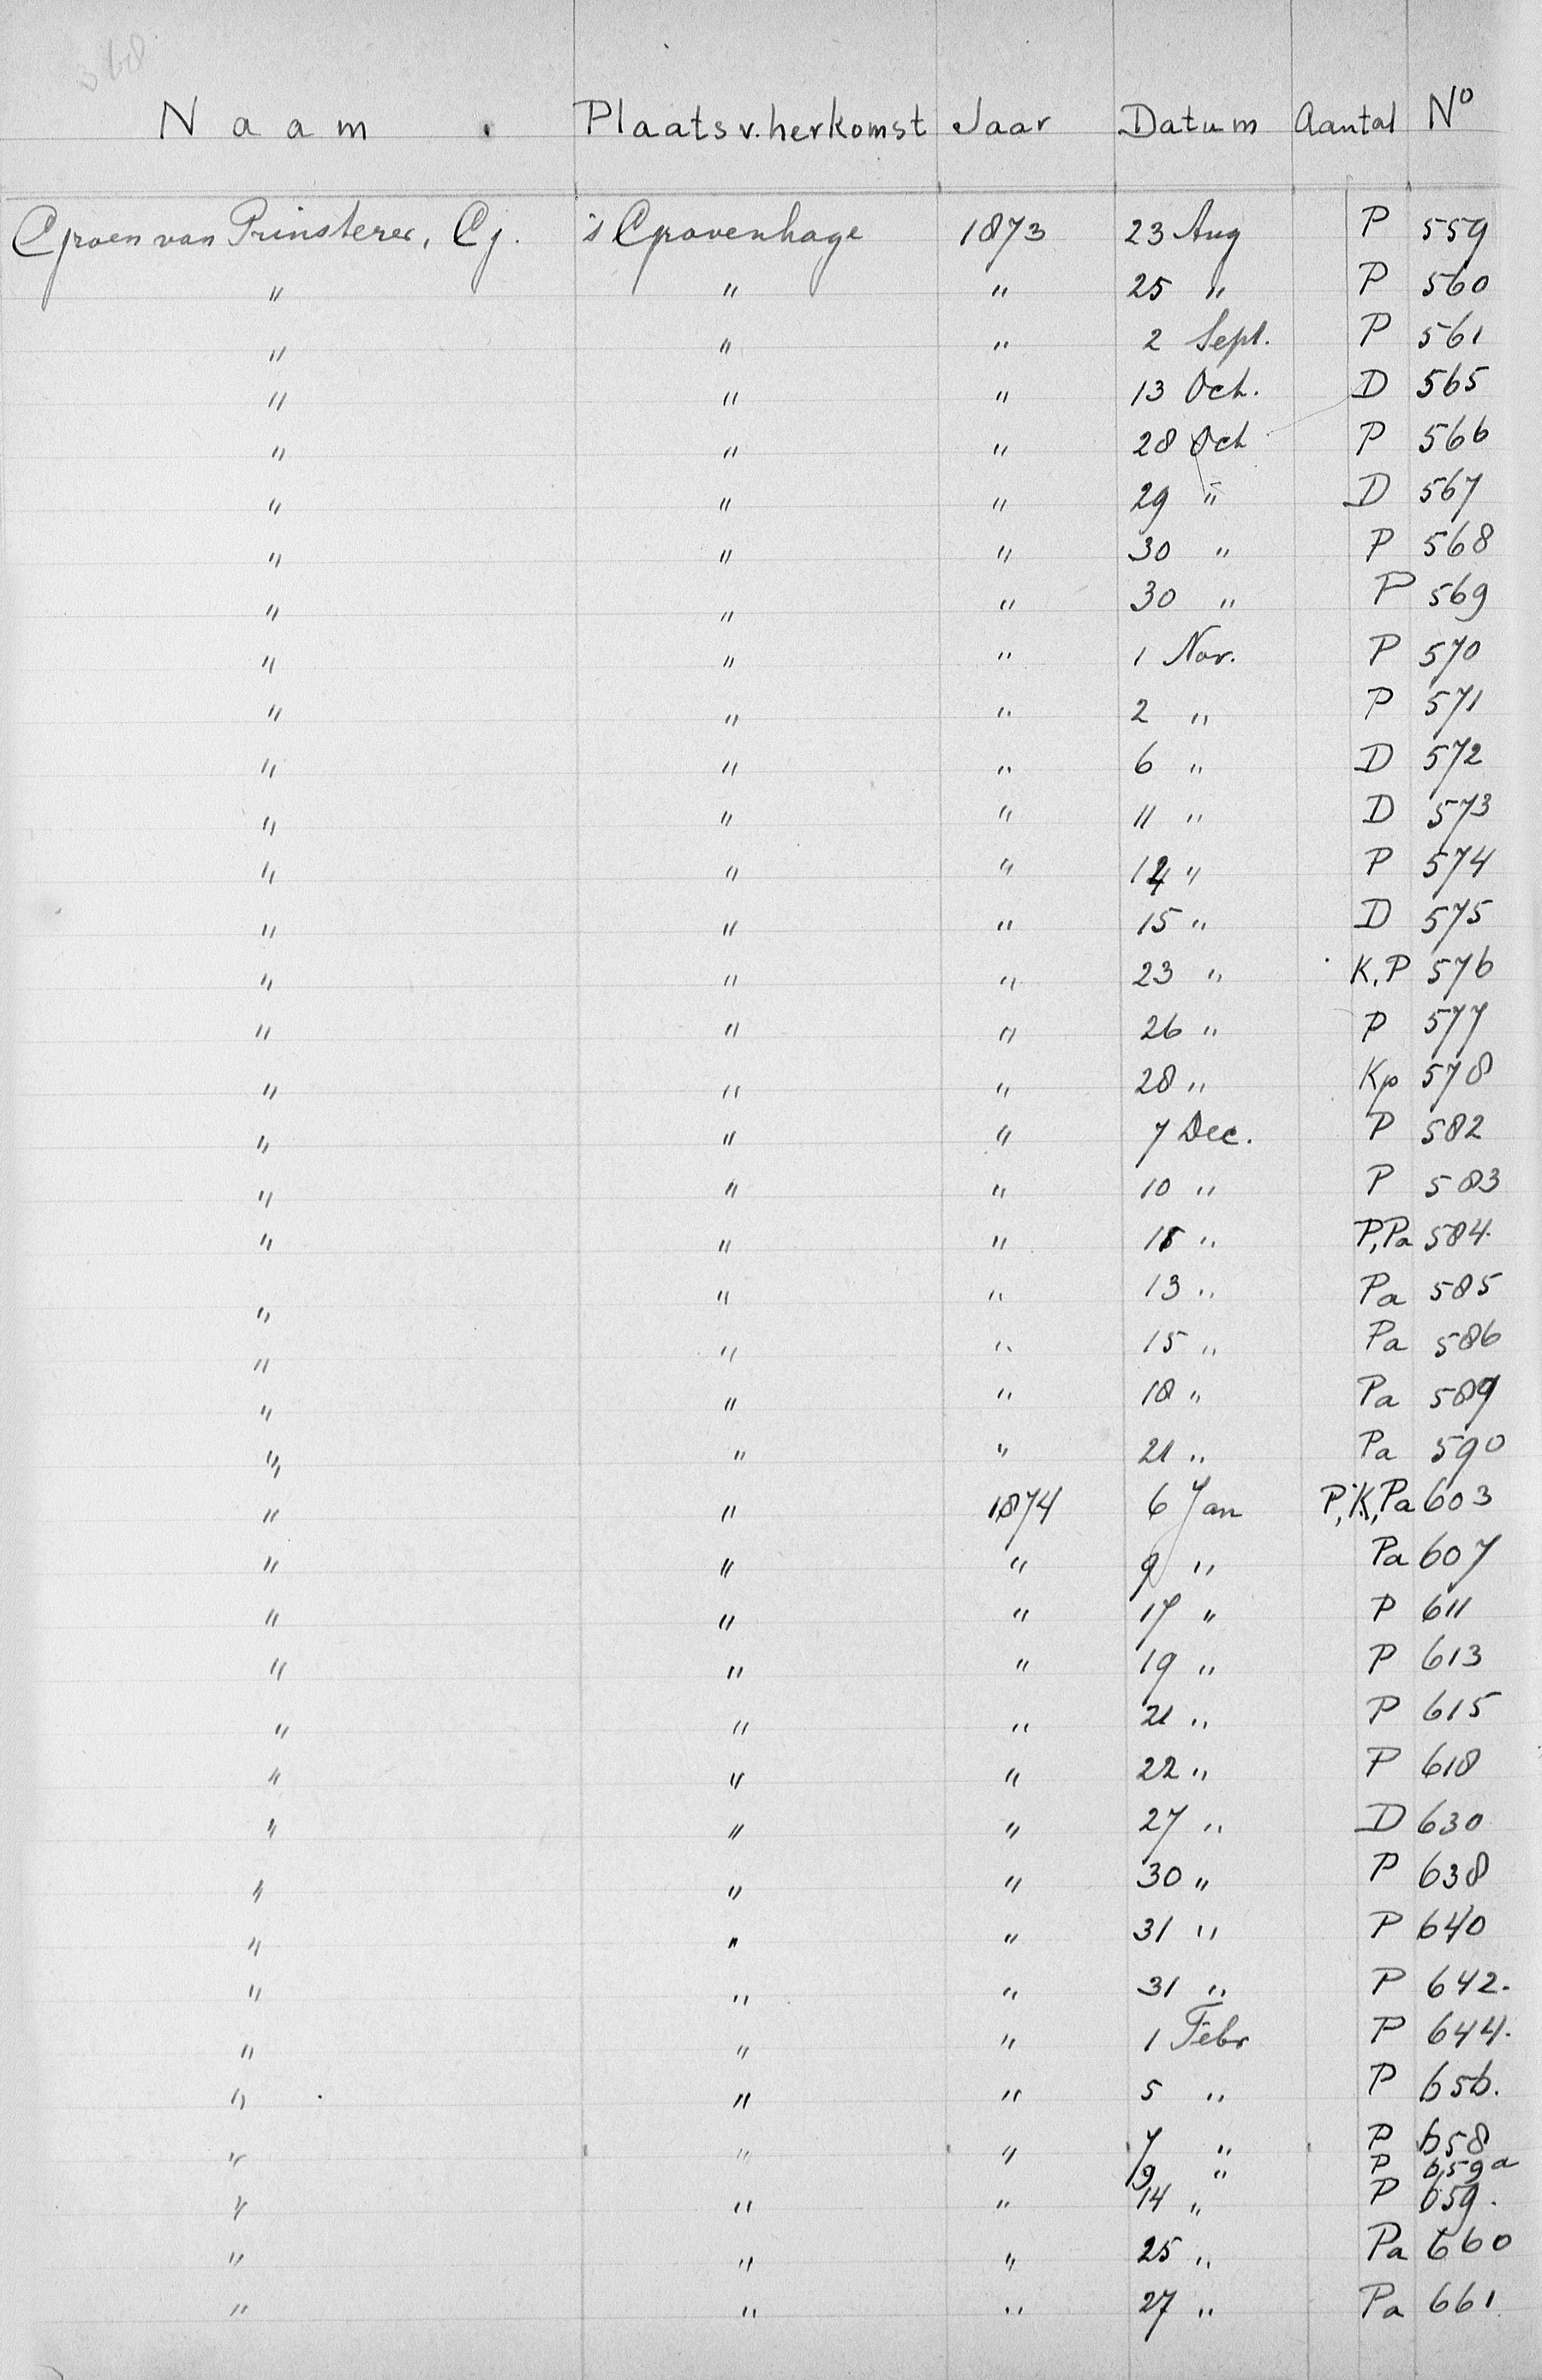 368
Naam Plaats v. herkomst Jaar Datum Aantal No
Groen van Prinsterer, G. 's Gravenhage 1873 23 Aug P 559
" " " 25 " P 560
" " " 2 Sept. P 561
" " " 13 Oct. D 565
" " " 28 Oct P 566
" " " 29 " D 567
" " " 30 " P 568
" " " 30 " P 569
" " " 1 Nov. P 570
" " " 2 " P 571
" " " 6 " D 572
" " " 11 " D 573
" " " " P 574
" " " 15 " D 575
" " " 23 " K,P 576
" " " 26 " P 577
" " " 28 " Kp 578
" " " 7 Dec. P 582
" " " 10 " P 583
" " " " P,Pa 584.
" " " 13 " Pa 585
" " " 15 " Pa 586
" " " 18 " Pa 589
" " " 21 " Pa 590
" " 1874 6 Jan P,K,Pa 603
" " " 9 " Pa 607
" " " 17 " P 611
" " " 19 " P 613
" " " 21 " P 615
" " " 22 " P 618
" " " 27 " D 630
" " " 30 " P 638
" " " 31 " P 640
" " " 31 " P 642.
" " " 1 Febr P 644.
" " " 5 " P 656.
" " " 7 " P 658
9 " P 659a
" " " 14 " P 659.
" " " 25 " Pa 660
" " " 27 " Pa 661